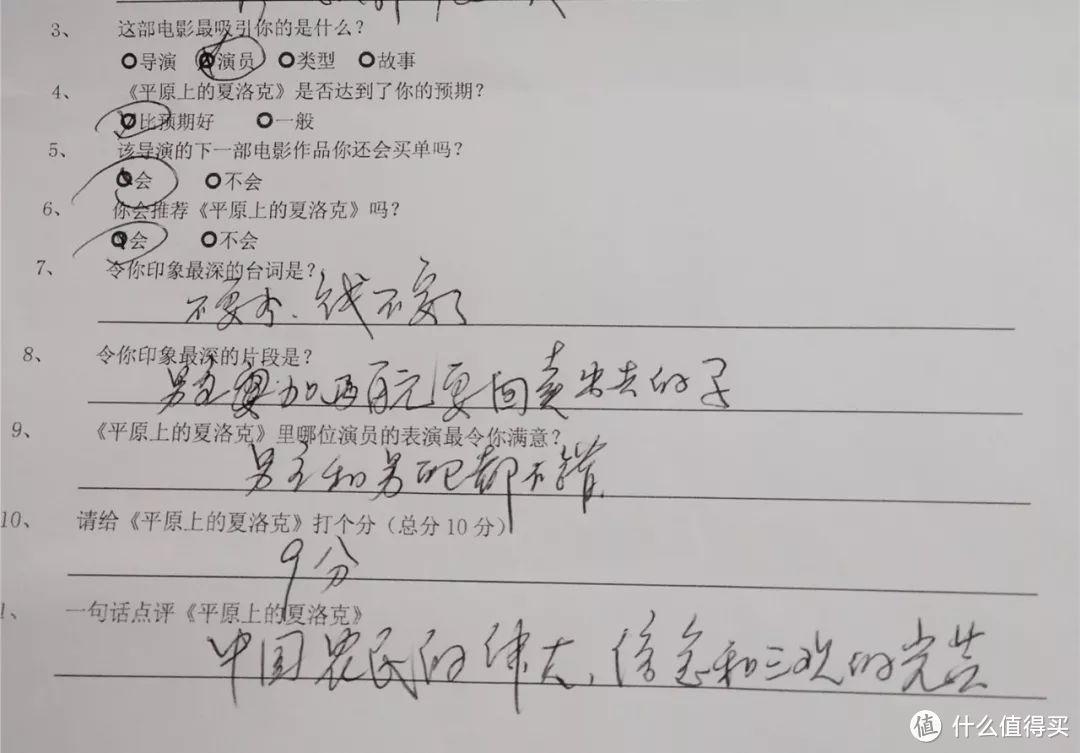 3、 这部电影最吸引你的是什么?
导演 演员 类型 故事
4、 《平原上的夏洛克》是否达到了你的预期?
比预期好 一般
5、 该导演的下一部电影作品你还会买单吗?
会 不会
6、 你会推荐《平原上的夏洛克》吗?
会 不会
7、 令你印象最深的台词是?
钱不要了
8、 令你印象最深的片段是?
男主 加 百元要回卖出去的
9、 《平原上的夏洛克》里哪位演员的表演最令你满意?
男主和男配都不错
10、 请给《平原上的夏洛克》打个分(总分10分)
9分
1、 一句话点评《平原上的夏洛克》
中国农民的伟大, 和三观的
值 什么值得买